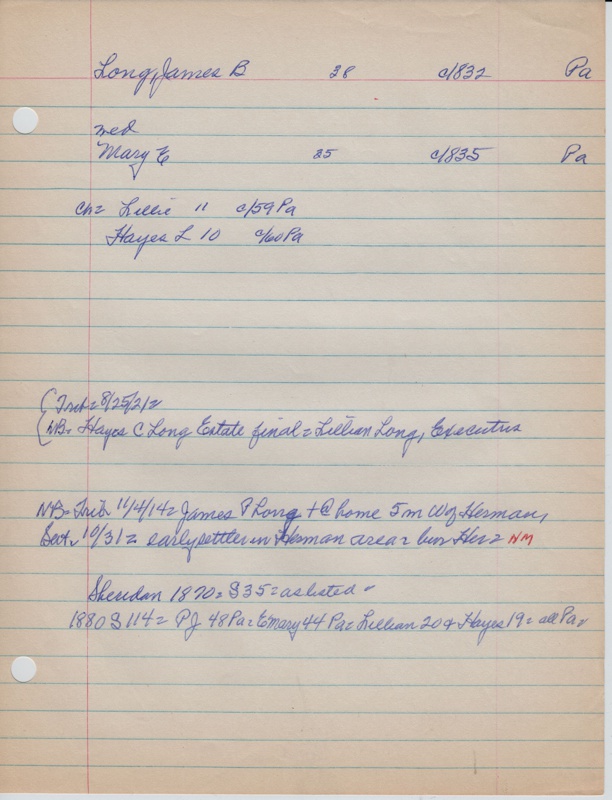 Long, James B 38 c/1832 Pa
med
Mary E 25 c/1835 Pa
ch= Lillie 11 c/59 Pa
Hayes L 10 c/60 Pa
(Trib= 8/25/21=
(NB= Hayes C Long Estate final= Lillian Long, Executrix
NB= Trib 11/4/14= James P Long + @ home 5 m W of Herman,
10/31= early settler in Herman area= bur Her= NM
Sheridan 1870= S35= as listed=
1880 S114= PJ 48 Pa= E Mary 44 Pa= Lillian 20 & Hayes 19= all Pa=